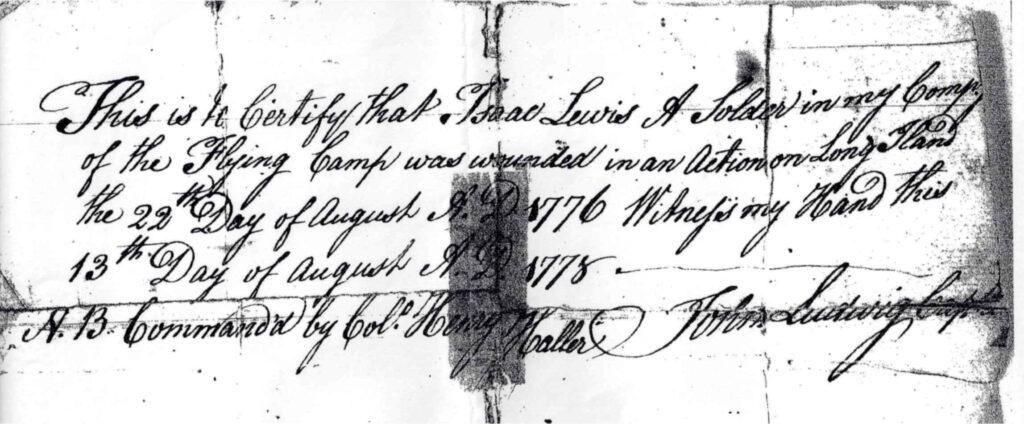 This is to Certify that Isaac Lewis A Solder in my Comp,
of the Flying Camp was wounded in an Action on Long Iland
the 22th Day of August A.D 1776 Witness my Hand this
13th Day of August A.D 1778
N.B. Command'd by Col.o Henry Haller John Ludwig Capt